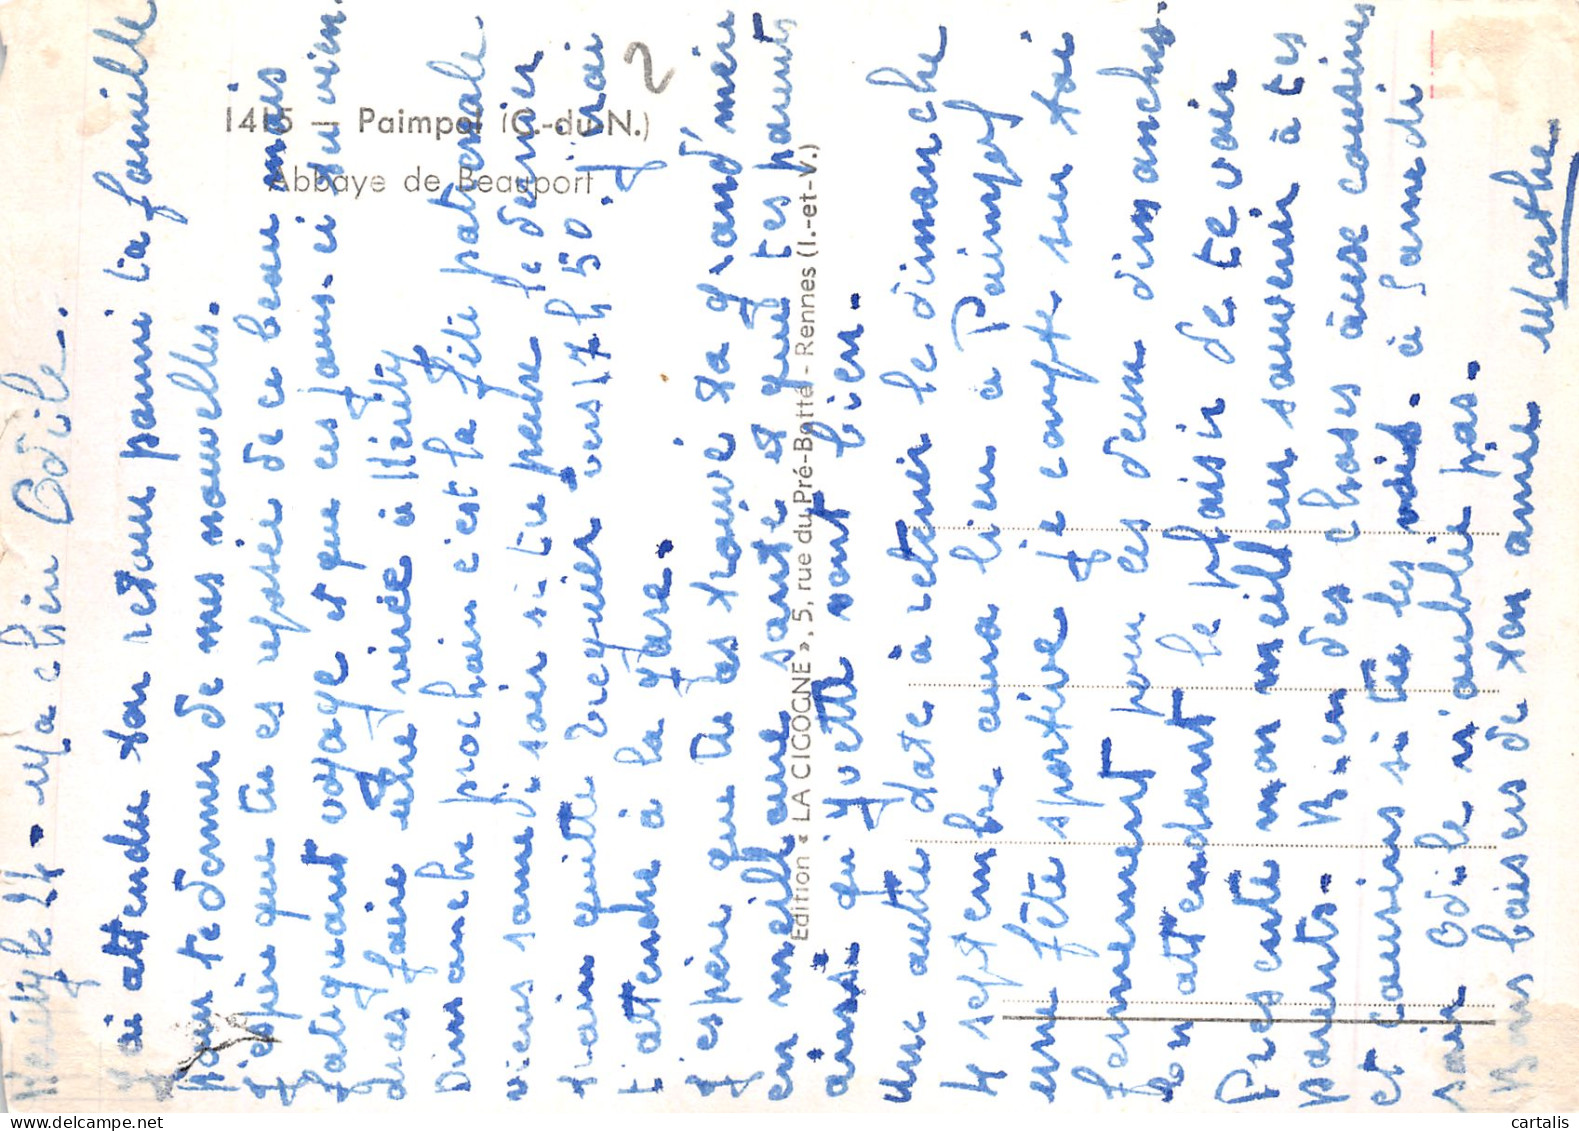 1415 — Paimpol (C.-du-N.)
Abbaye de Beauport
Edition « LA CIGOGNE », 5, rue du Pré-Botté - Rennes (I.-et-V.)
2
le 24 - Ma chère Odile.
J'ai attendu ton retour parmi ta famille
pour te donner de mes nouvelles.
J'espère que tu es reposée de ce beau mais
fatiguant voyage et que ces jours-ci tu vien-
dras faire une virée à
Dimanche prochain c'est la fête patronale
viens samedi soir si tu peux le dernier
train quitte vers 17 h 50. J'irai
t'attendre à la gare.
J'espère que tu as trouvé ta grand'mère
en meilleure santé et que tes parents
ainsi qu'Yvette vont bien.
Une autre date à retenir le dimanche
4 septembre aura lieu à Paimpol
une fête sportive je compte sur toi
fermement pour ces deux dimanches.
En attendant le plaisir de te voir
Présente mon meilleur souvenir à tes
parents. Bien des choses aux cousines
et cousins si tu les vois. à samedi
soir Odile n'oublie pas.
Bons baisers de ton amie Marthe
cartalis